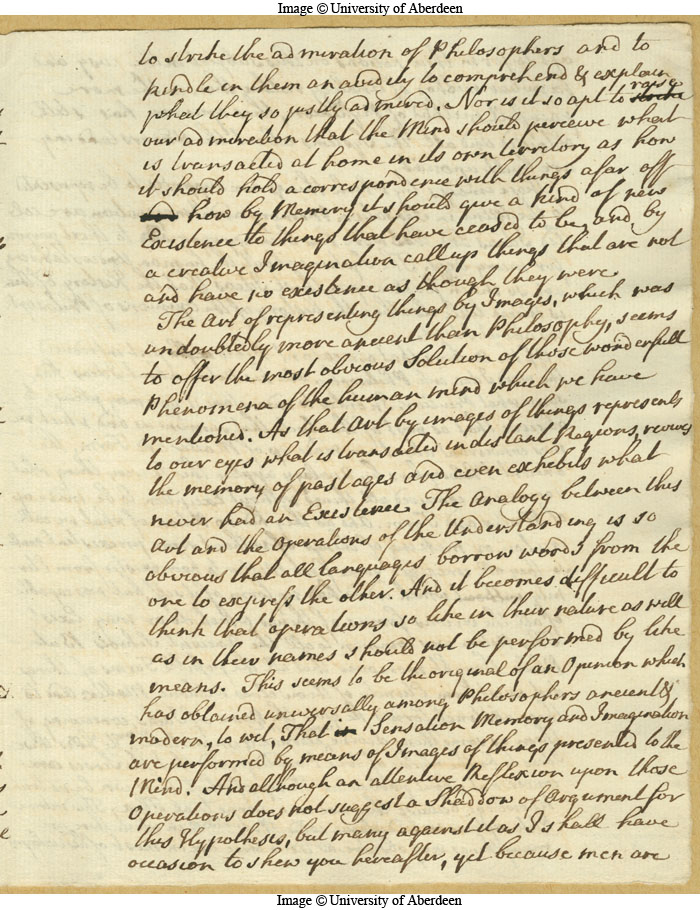 Image © University of Aberdeen
to strike the admiration of Philosophers and to
kindle in them an avidity to comprehend & explain
what they so justly admired. Nor is it so apt to strike raise
our admiration that the Mind should perceive what
is transacted at home in its own territory as how
it should hold a correspondence with things afar off
and how by Memory it should give a kind of new
Existence to things that have ceased to be, and by
a creative Imagination call up things that are not
and have no existence as though they were.
The Art of representing things by Images, which was
undoubtedly more ancient than Philosophy, seems
to offer the most obvious Solution of those wonderfull
Phenomena of the human mind which we have
mentioned. As that Art by images of things represents
to our eyes what is transacted in distant Regions, revives
the memory of past ages and even exhibits what
never had an Existence. The Analogy between this
Art and the Operations of the Understanding is so
obvious that all languages borrow words from the
one to express the other. And it becomes difficult to
think that operations so like in their nature as well
as in their names should not be performed by like
means. This seems to be the original of an Opinion which
has obtained universally among Philosophers ancient &
modern, to wit, That in Sensation Memory and Imagination
are performed by means of Images of things presented to the
Mind. And although an attentive Reflexion upon those
Operations does not suggest a Shaddow of Argument for
this Hypothesis, but many against it as I shall have
occasion to shew you hereafter, yet because men are
Image © University of Aberdeen